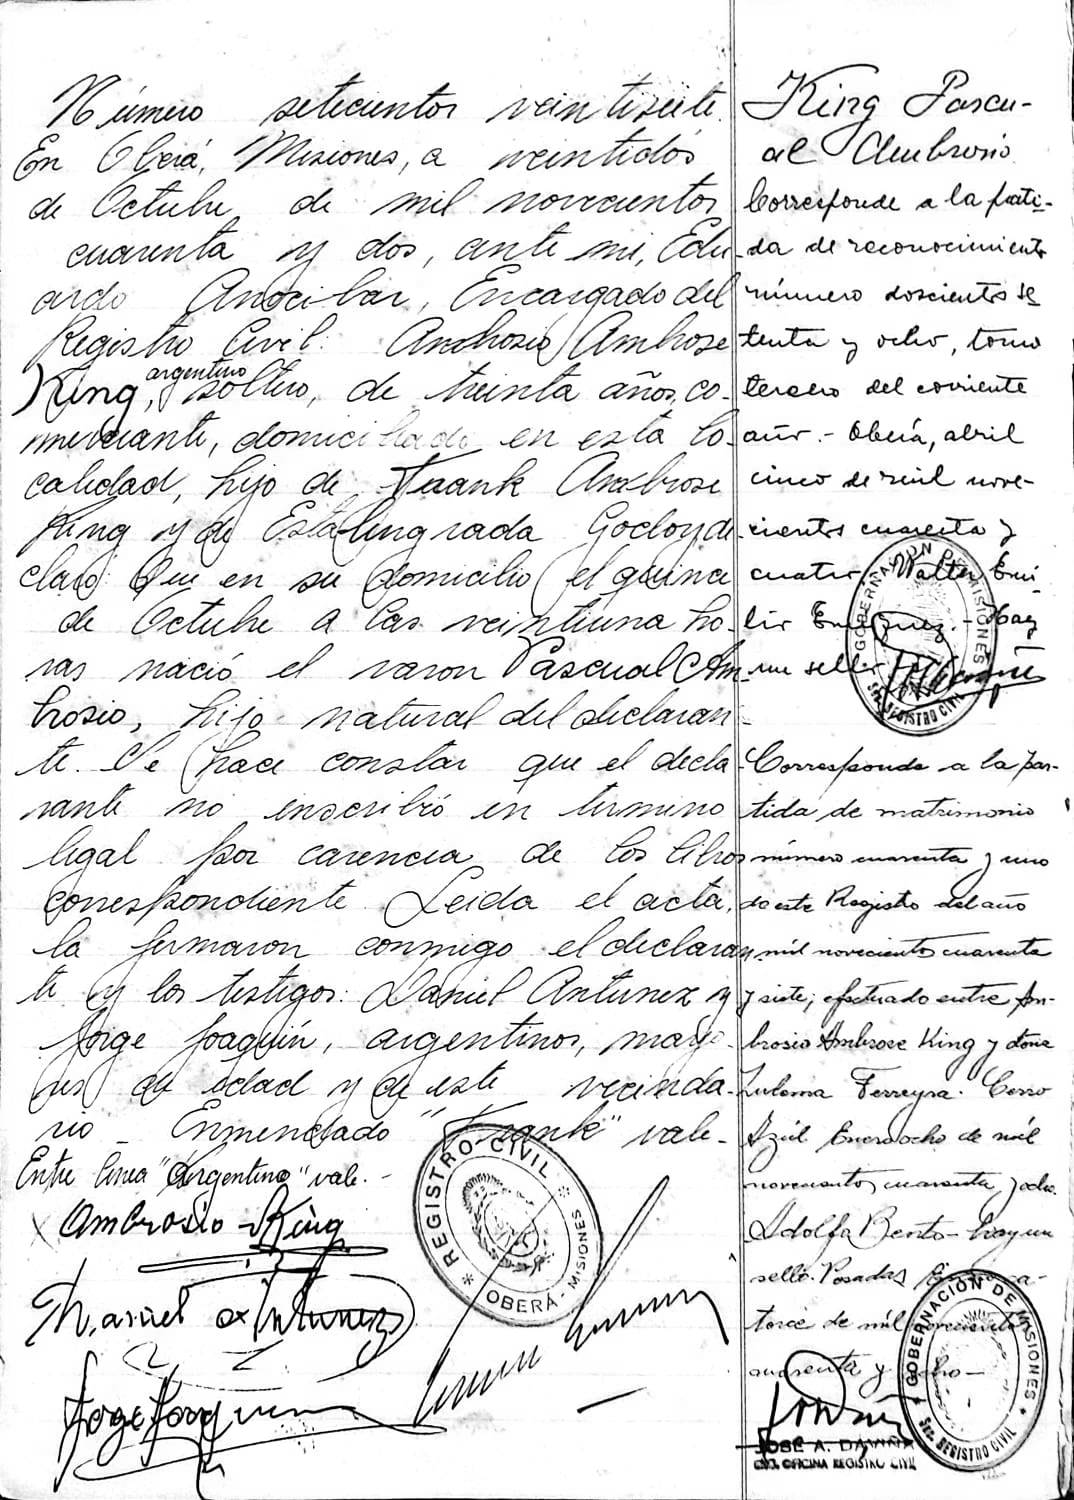 Número setecientos veintisiete.
En Oberá, Misiones, a veintidós
de Octubre de mil novecientos
cuarenta y dos, ante mi, Edu-
ardo Anocibar, Encargado del
Registro Civil: Ambrosio Ambrose
argentino
King, soltero, de treinta años, co-
merciante, domiciliado en esta lo-
calidad, hijo de Frank Ambrose
King y de Estalingrada Godoy de-
claró: Que en su domicilio el quince
de Octubre a las veintiuna ho-
ras nació el varon Pascual Am-
brosio, hijo natural del declaran-
te. Se hace constar que el decla-
rante no inscribió en termino
legal por carencia de los libros
correspondiente. Leida el acta,
la firmaron conmigo el declaran-
te y los testigos: Daniel Antunez y
Jorge Joaquín, argentinos, mayo-
res de edad y de este vecinda-
rio - Enmendado "Frank" vale -
Entre linea "Argentino" vale. -
Ambrosio King
Antunez
Jorge
REGISTRO CIVIL
OBERÁ - MISIONES
King Pascu-
al Ambrosio
Corresponde a la parti-
da de reconocimiento
número doscientos se
tenta y ocho, tomo
tercero del corriente
año. - Oberá, abril
cinco de mil nove-
cientos cuarenta y
cuatro Walter Emi-
lio - Hay
un sello
GOBERNACION DE MISIONES
Sec. REGISTRO CIVIL
Corresponde a la par-
tida de matrimonio
número cuarenta y uno
de este Registro del año
mil novecientos cuarenta
y siete, efectuado entre Am-
brosio Ambrose King y doña
Zulema Ferreyra. Cerro
Azúl Enero ocho de mil
novecientos cuarenta y ocho.
Adolfo Bento - hay un
sello. Posadas Enero ca-
torce de mil novecientos
cuarenta y ocho -
GOBERNACIÓN DE MISIONES
Sec. REGISTRO CIVIL
JOSE A. DAVIÑA
OFICINA REGISTRO CIVIL